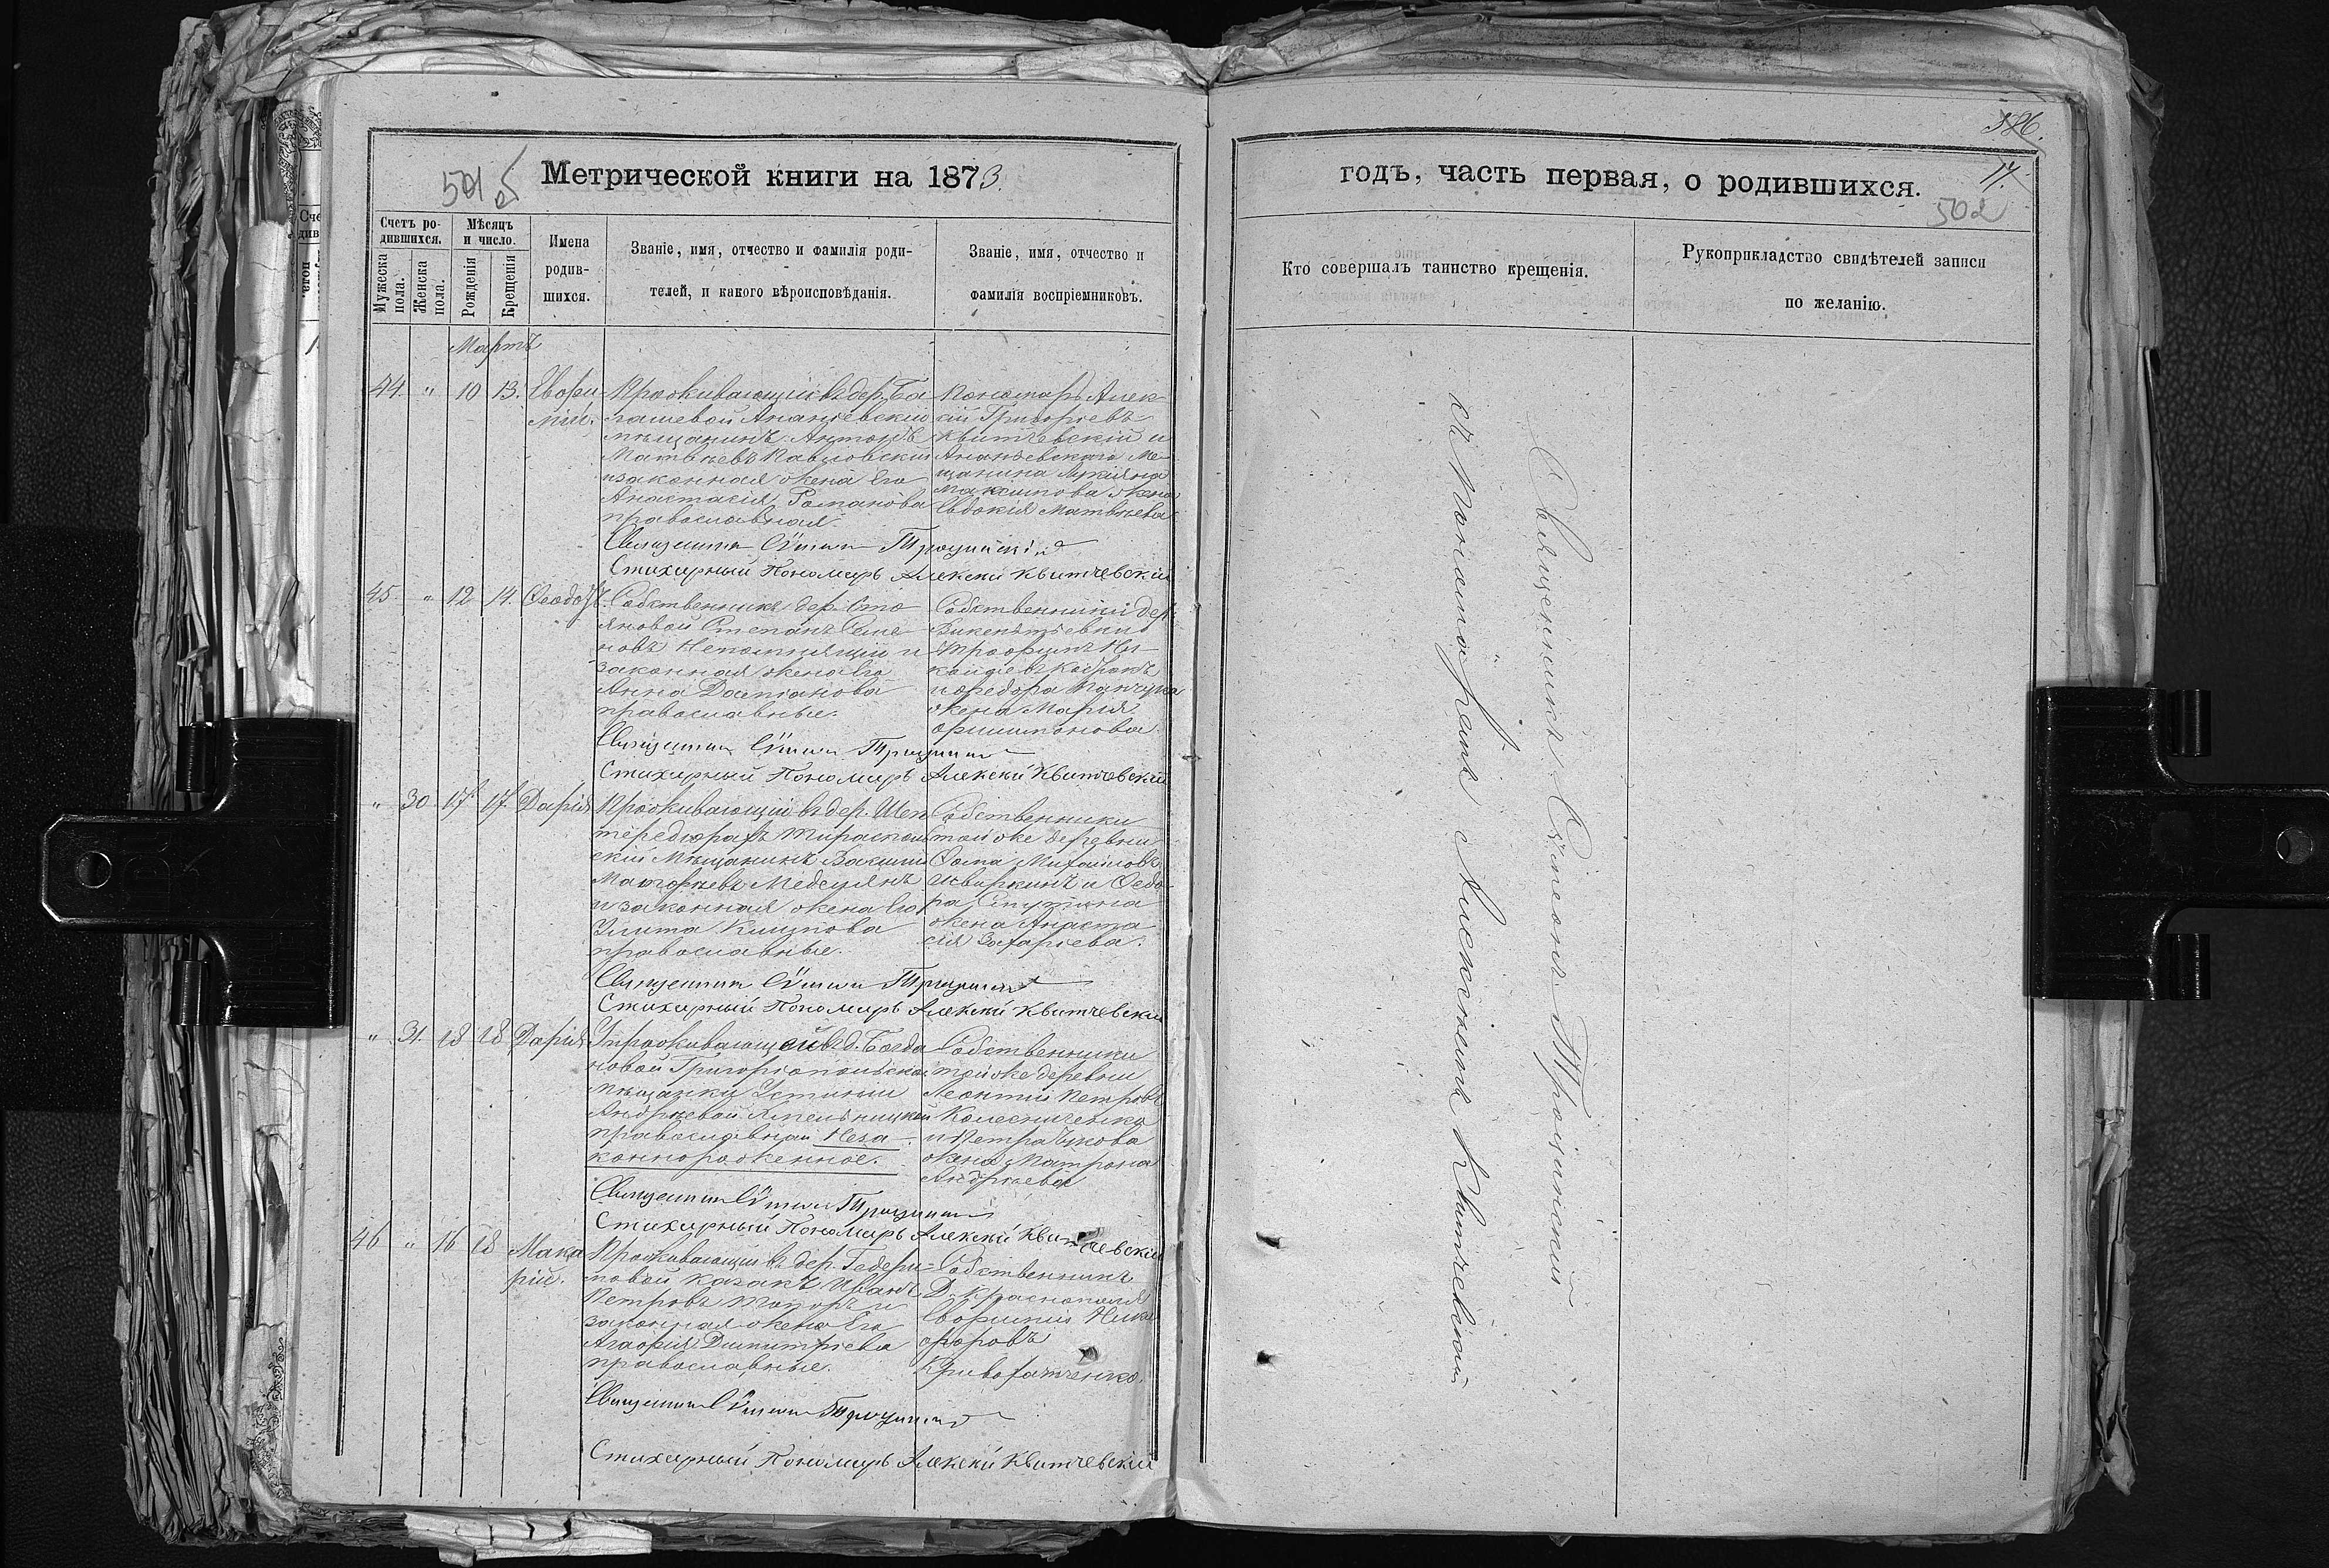 501 об
Метрической книги на 1873.
Счетъ ро-
дившихся.
Мѣсяцъ
и число.
Мужеска
пола.
Женска
пола.
Рожденія
Крещенія
Имена
родив-
шихся.
Званіе, имя, отчество и фамилія роди-
телей, и какого вѣроисповѣданія.
Званіе, имя, отчество и
фамилія воспріемниковъ.
Мартъ
44. " 10 13. Евфи
мій.
Проживающій въ дер. Ба
лашевой Ананьевскій
мѣщанинъ Антонъ
Матвѣевъ Павловскій
и законная жена Его
Анастасія Романова
православная.
Пономарь Алек
сій Григорьевъ
Квитчевскій и
Ананьевскаго Ме-
щанина Лукіяна
Максимова жена
Евдокія Матвѣева
Священникъ Сѵмеонъ Троцинскій
Стихарный Пономарь Алексій Квитчевскій
45. " 12 14. Ѳеодо
Собственникъ дер. Сто
яновой Степанъ Семе
новъ Непомнящій и
законная жена Его
Анна Даміанова
православные.
Собственники дер.
Викентьевки
Трофимъ Ни-
жена Марія
Филимонова
Священникъ Сѵмеонъ Троцинскій
Стихарный Пономарь Алексій Квитчевскій
" 30 17 17. Дарія
Проживающій въ дер. Шен
Тираспол
скій Мѣщанинъ
и законная жена Его
Улита Климова
православные.
Собственники
той же деревни
Ѳома Михайловъ
и Ѳедо
ра
жена Анаста
сія Захарьева.
Священникъ Сѵмеонъ Троцинскій
Стихарный Пономарь Алексій Квитчевскій
" 31. 18 18 Дарія
У проживающей въ д. Богда
новой Григоріопольской
мѣщанки Устиніи
Андрѣевой
православной Неза-
коннорожденное.
Собственники
той же деревни
Леонтій Петровъ
Колесниченко
и Петра
жена Матрона
Андреева
Священникъ Сѵмеонъ Троцинскій
Стихарный Пономарь Алексій Квитчевскій
46 " 16 18 Мака
рій.
Проживающій въ дер. Гедери-
мовой казакъ Иванъ
Петровъ и
законная жена Его
Агафія Димитріева
православные.
Собственникъ
Д. Краснополя
Евфимій Ники
форовъ
Кривохатченко.
Священникъ Сѵмеонъ Троцинскій
Стихарный Пономарь Алексій Квитчевскій
386.
17.
годъ, часть первая, о родившихся.
502
Кто совершалъ таинство крещенія.
Рукоприкладство свидѣтелей записи
по желанію.
Священникъ Сѵмеонъ Троцинскій
съ Пономаремъ Алексіемъ Квитчевскимъ